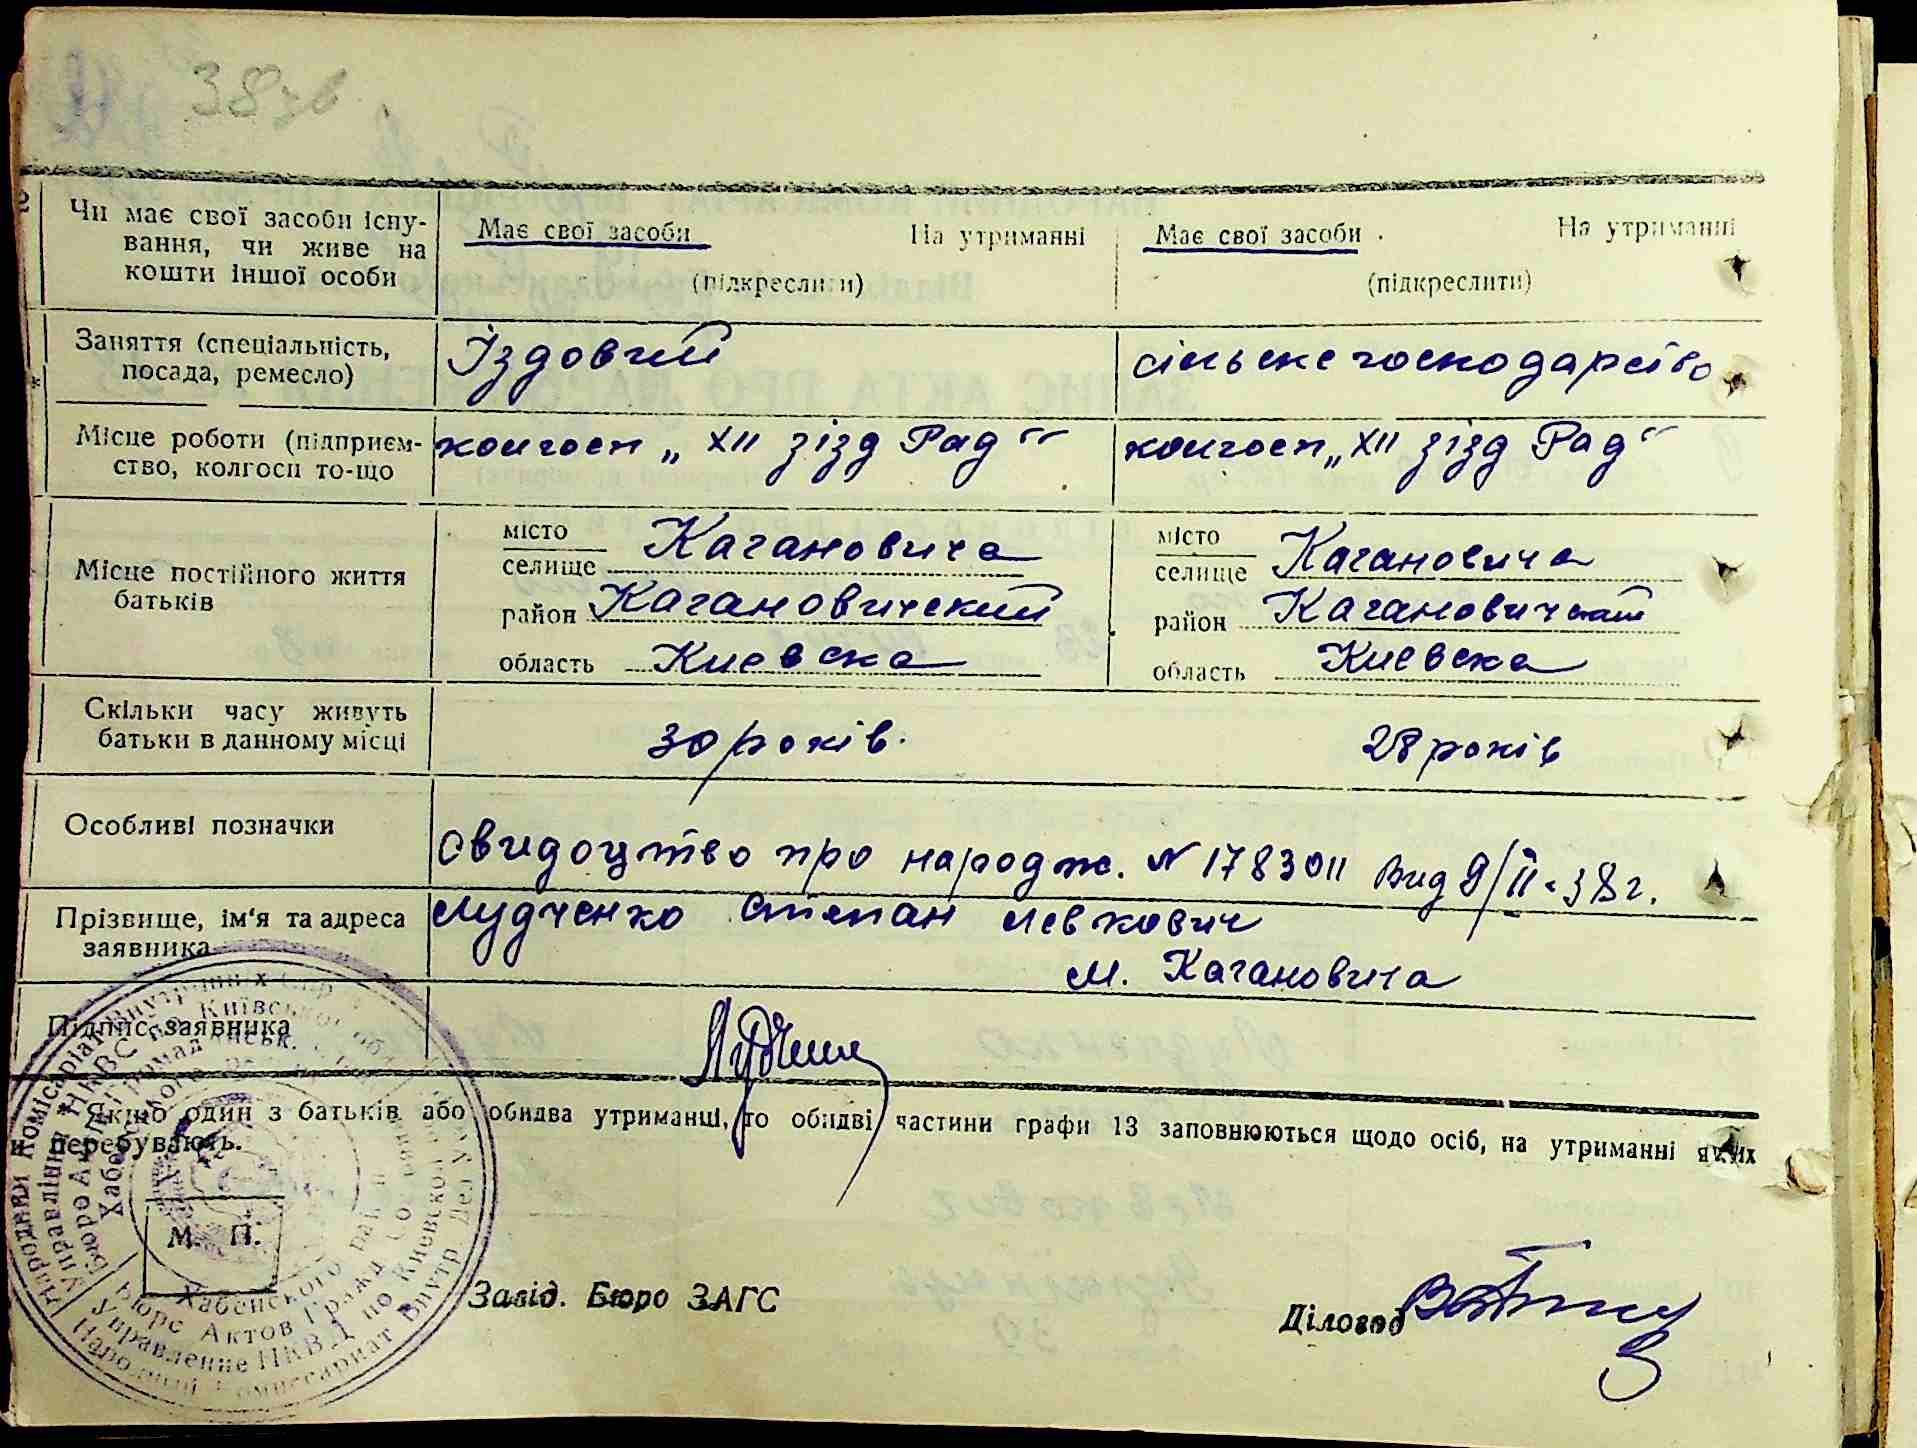 38 зв
Чи має свої засоби існу-
вання, чи живе на
кошти іншої особи
Має свої засоби На утриманні Має свої засоби На утриманні
(підкреслити) (підкреслити)
Заняття (спеціальність,
посада, ремесло)
Їздовий сільське господарство
Місце роботи (підприєм-
ство, колгосп то-що
колгосп „XII зізд Рад" колгосп „XII зізд Рад"
Місце постійного життя
батьків
місто
селище Кагановича
район Кагановичский
область Киевска
місто
селище Кагановича
район Кагановичский
область Киевска
Скільки часу живуть
батьки в данному місці
30 років. 28 років
Особливі позначки
Свидоцтво про народж. N 1783011 вид 9/II-38г.
Прізвище, ім'я та адреса
заявника
Лудченко Степан Левкович
м. Кагановича
Підпис заявника
* Якщо один з батьків або обидва утриманці, то обидві частини графи 13 заповнюються щодо осіб, на утриманні яких
перебувають.
М. П.
Народний Комісаріат Внутрішніх Справ
Управління НКВС по Київській обл.
Хабенського
Бюро Актов Гражд.
Управление НКВД по Киевской
Народный Комиссариат Внутр. Дел
Завід. Бюро ЗАГС
Діловод